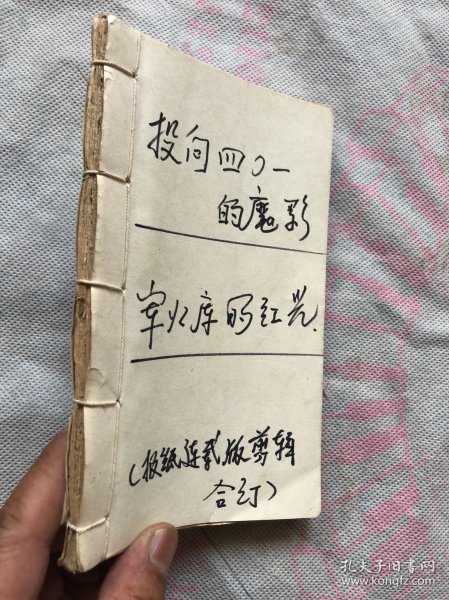 投向四〇一
的魔影
军火库的红光.
(报纸连载版剪辑
合订)
孔夫子旧书网
www.kongfz.com